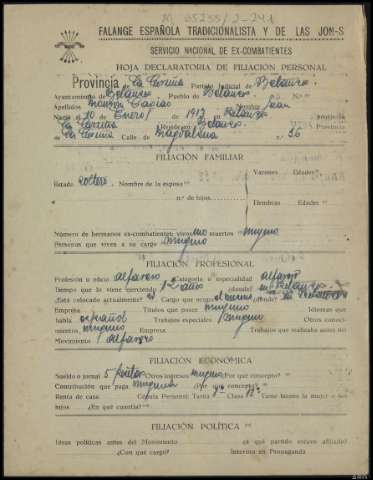 M 65255/2-241
FALANGE ESPAÑOLA TRADICIONALISTA Y DE LAS JON-S
SERVICIO NACIONAL DE EX-COMBATIENTES
HOJA DECLARATORIA DE FILIACIÓN PERSONAL
Provincia de La Coruña Partido Judicial de Betanzos
Ayuntamiento de Betanzos Pueblo de Betanzos
Apellidos Nombre Juan
Nació el 10 de Enero de 1917 en Betanzos Provincia
de La Coruña Calle de Magdalena n.º 36
FILIACIÓN FAMILIAR
Varones Edades
Estado soltero Nombre de la esposa
n.º de hijos
Hembras Edades
Número de hermanos ex-combatientes: vivos no muertos ninguno
Personas que viven a su cargo ninguno
FILIACIÓN PROFESIONAL
Profesión u oficio alfarero Categoría o especialidad alfarero
Tiempo que la viene ejerciendo 12 años ¿donde? en Betanzos
¿Esta colocado actualmente? Cargo que ocupa ¿donde?
Empresa Títulos que posee ninguno Idiomas que
habla español Trabajos especiales ninguno Otros conoci-
mientos ninguno Empresa Trabajos que realizaba antes del
Movimiento alfarero
FILIACIÓN ECONÓMICA
Sueldo o jornal 5 Otros ingresos ninguno ¿Por que concepto?
Contribución que paga ninguna ¿Por que concepto?
Renta de casa Cédula Personal: Tarifa Clase
hijos ¿En qué cuantía?
FILIACIÓN POLÍTICA
Ideas políticas antes del Movimiento a qué partido estuvo afiliado
¿Con qué cargo? Intervino en Propaganda